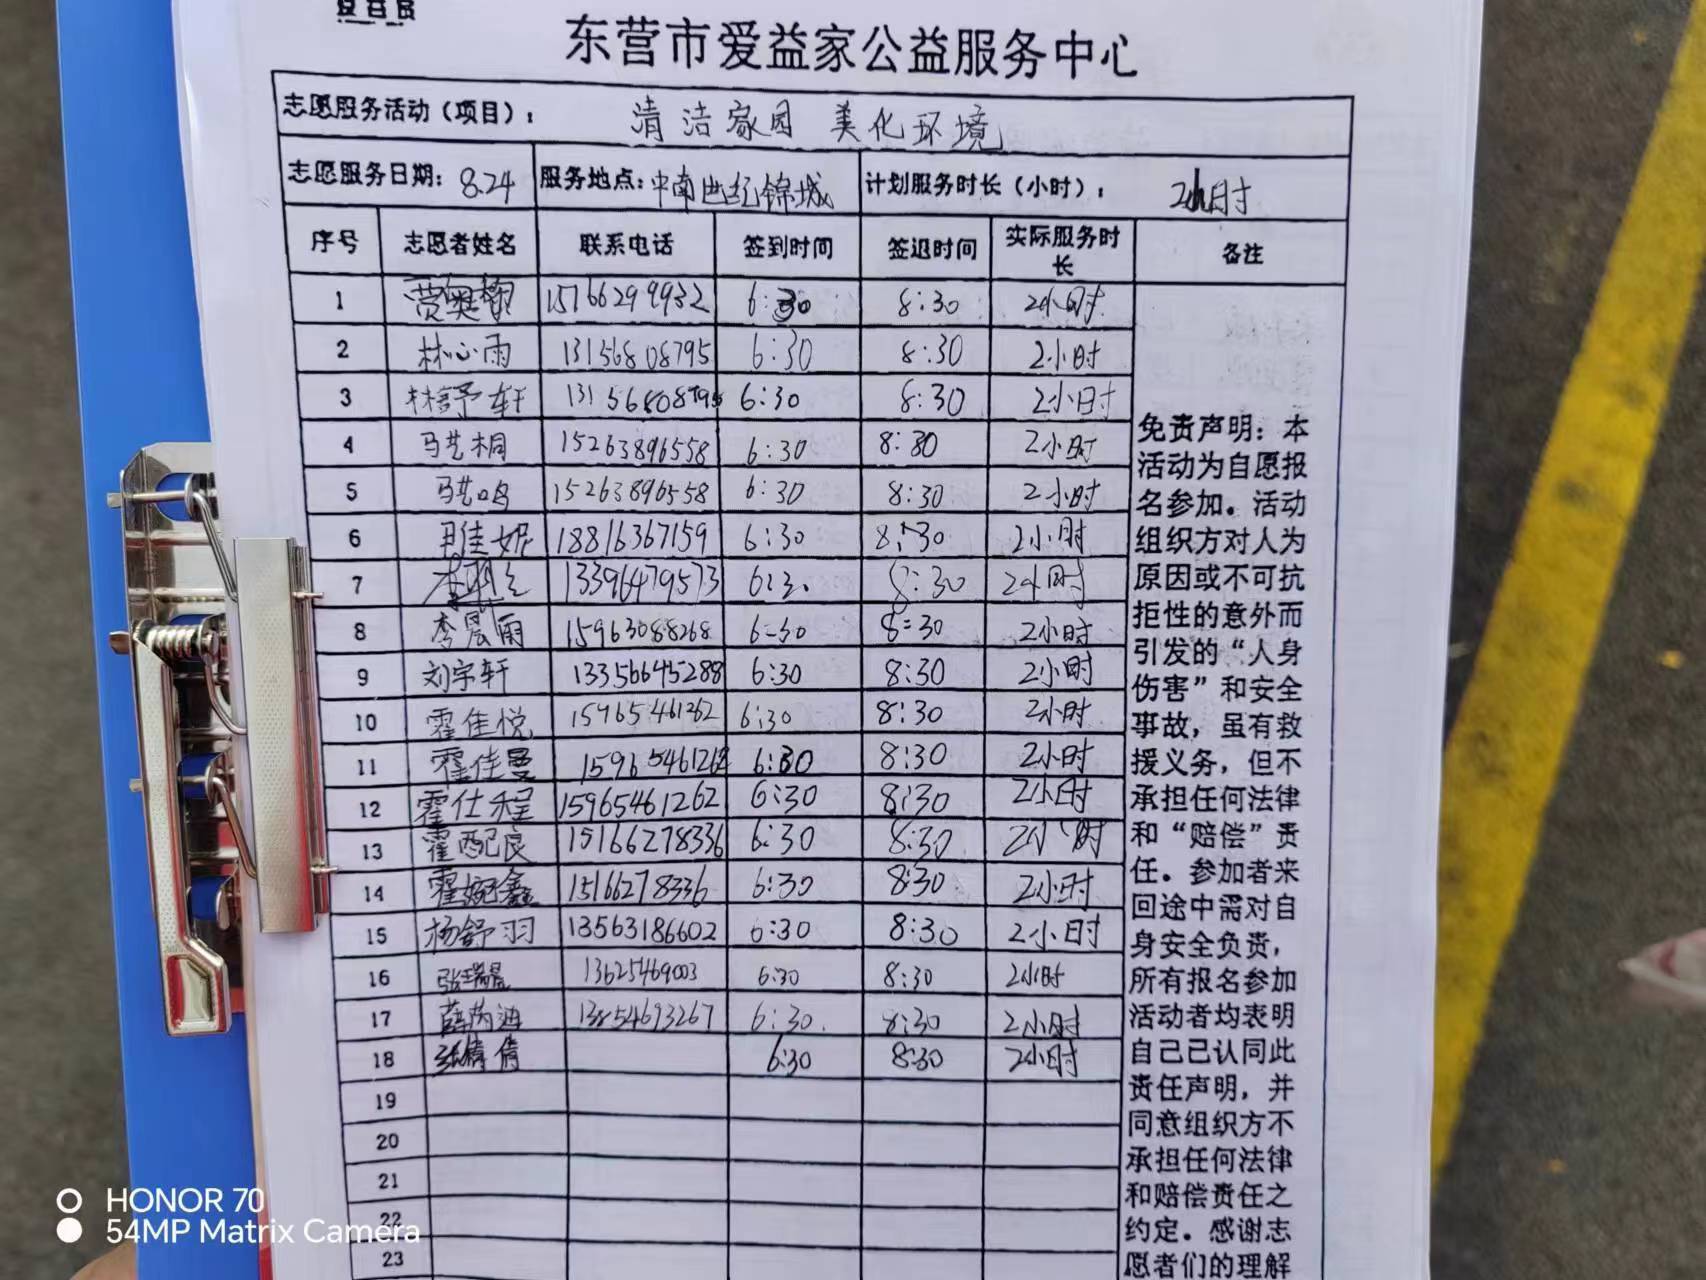 东营市爱益家公益服务中心
志愿服务活动（项目）： 清洁家园 美化环境
志愿服务日期：8.24 服务地点：中南世纪锦城 计划服务时长（小时）： 2小时
序号 志愿者姓名 联系电话 签到时间 签退时间 实际服务时长 备注
1 15166299932 6:30 8:30 2小时
2 林心雨 13156808795 6:30 8:30 2小时
3 林舒轩 13156808795 6:30 8:30 2小时
4 马艺桐 15263896558 6:30 8:30 2小时
5 马艺鸣 15263896558 6:30 8:30 2小时
6 18816367159 6:30 8:30 2小时
7 13396479573 6:3. 8:30 2小时
8 李晨雨 15963088268 6:30 8:30 2小时
9 刘宇轩 13356645288 6:30 8:30 2小时
10 霍佳悦 15965461262 6:30 8:30 2小时
11 霍佳曼 15965461262 6:30 8:30 2小时
12 霍仕程 15965461262 6:30 8:30 2小时
13 霍配良 15166278336 6:30 8:30 2小时
14 霍婉鑫 15166278336 6:30 8:30 2小时
15 杨舒羽 13563186602 6:30 8:30 2小时
16 张瑞晨 13625469003 6:30 8:30 2小时
17 13854693267 6:30 8:30 2小时
18 张倩倩 6:30 8:30 2小时
19
20
21
22
23
免责声明：本
活动为自愿报
名参加。活动
组织方对人为
原因或不可抗
拒性的意外而
引发的“人身
伤害”和安全
事故，虽有救
援义务，但不
承担任何法律
和“赔偿”责
任。参加者来
回途中需对自
身安全负责，
所有报名参加
活动者均表明
自己已认同此
责任声明，并
同意组织方不
承担任何法律
和赔偿责任之
约定。感谢志
愿者们的理解
HONOR 70
54MP Matrix Camera